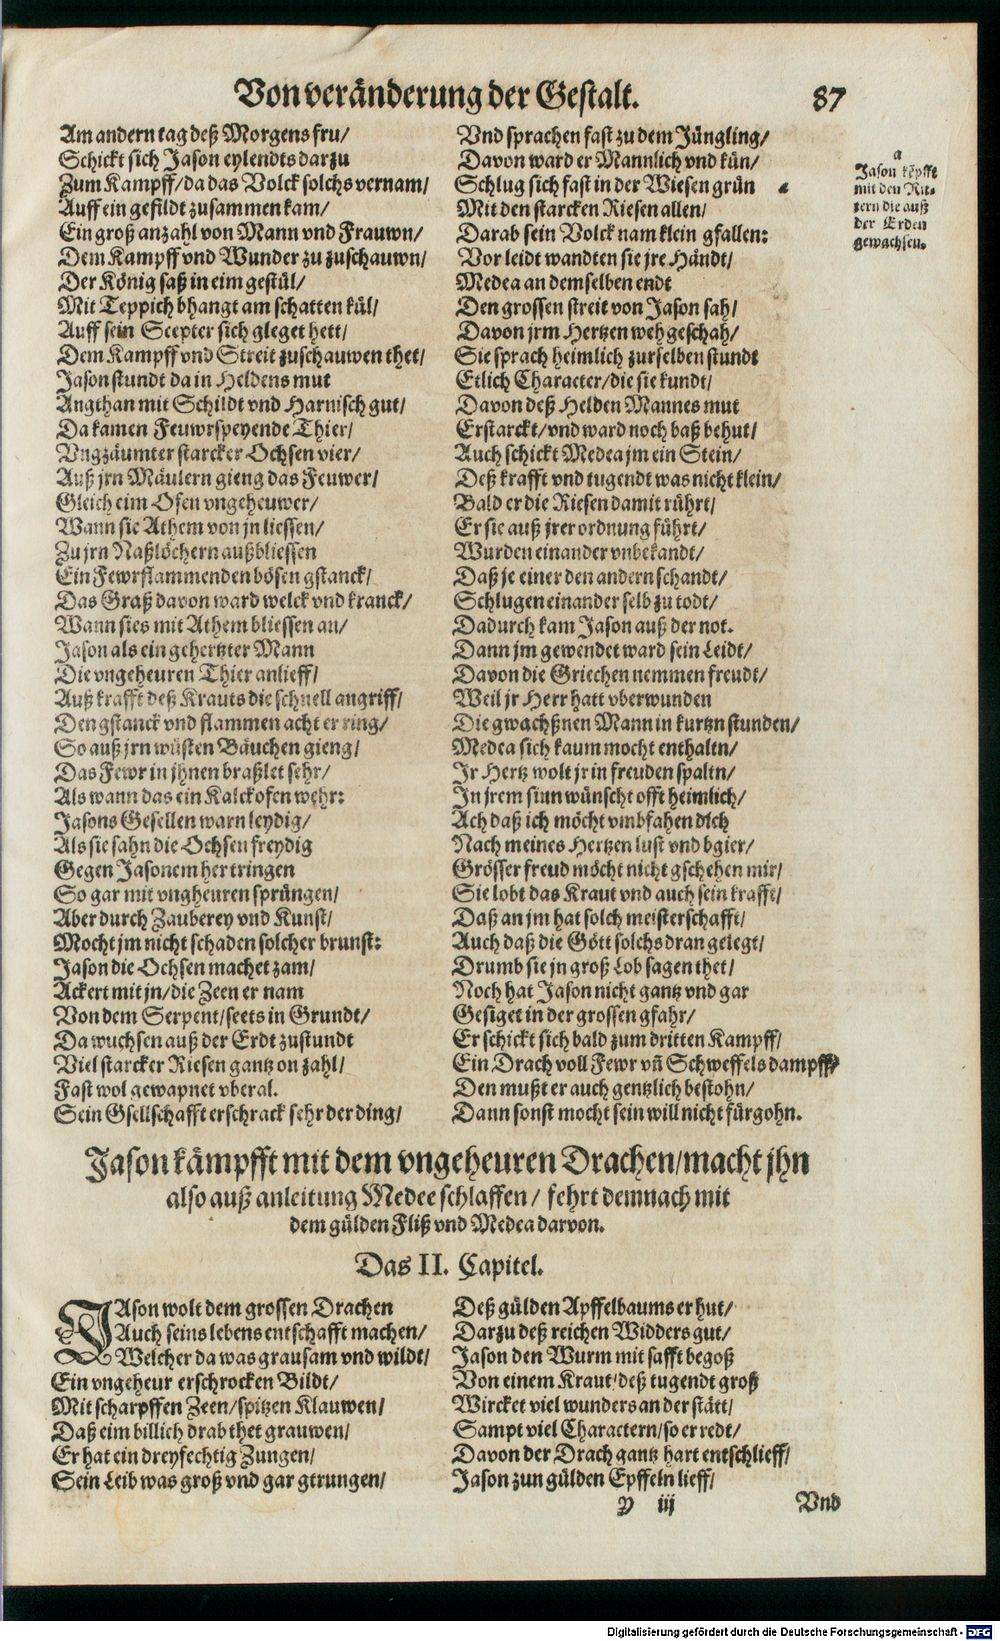 Von veränderung der Gestalt. 87
Am andern tag deß Morgens fru/
Schickt sich Jason eylendts darzu
Zum Kampff/da das Volck solchs vernam/
Auff ein gefildt zusammen kam/
Ein groß anzahl von Mann vnd Frauwn/
Dem Kampff vnd Wunder zu zuschauwn/
Der König saß in eim gestül/
Mit Teppich bhangt am schatten kül/
Auff sein Scepter sich gleget hett/
Dem Kampff vnd Streit zuschauwen thet/
Jason stundt da in Heldens mut
Angthan mit Schildt vnd Harnisch gut/
Da kamen Feuwrspeyende Thier/
Vngzäumter starcker Ochsen vier/
Auß jrn Mäulern gieng das Feuwer/
Gleich eim Ofen vngeheuwer/
Wann sie Athem von jn liessen/
Zu jrn Naßlöchern außbliessen
Ein Fewrflammenden bösen gstanck/
Das Graß davon ward welck vnd kranck/
Wann sies mit Athem bliessen an/
Jason als ein gehertzter Mann
Die vngeheuren Thier anlieff/
Auß krafft deß Krauts die schnell angriff/
Den gstanck vnd flammen acht er ring/
So auß jrn wüsten Bäuchen gieng/
Das Fewr in jhnen braßlet sehr/
Als wann das ein Kalckofen wehr:
Jasons Gesellen warn leydig/
Als sie sahn die Ochsen freydig
Gegen Jasonem her tringen
So gar mit vngheuren sprüngen/
Aber durch Zauberey vnd Kunst/
Mocht jm nicht schaden solcher brunst:
Jason die Ochsen machet zam/
Ackert mit jn/die Zeen er nam
Von dem Serpent/seets in Grundt/
Da wuchsen auß der Erdt zustundt
Viel starcker Riesen gantz on zahl/
Fast wol gewapnet vberal.
Sein Gsellschafft erschrack sehr der ding/
Vnd sprachen fast zu dem Jüngling/
Davon ward er Mannlich vnd kün/
Schlug sich fast in der Wiesen grün a
Mit den starcken Riesen allen/
Darab sein Volck nam klein gfallen:
Vor leidt wandten sie jre Händt/
Medea an demselben endt
Den grossen streit von Jason sah/
Davon jrm Hertzen weh geschah/
Sie sprach heimlich zurselben stundt
Etlich Character/die sie kundt/
Davon deß Helden Mannes mut
Erstarckt/vnd ward noch baß behut/
Auch schickt Medea jm ein Stein/
Deß krafft vnd tugendt was nicht klein/
Bald er die Riesen damit rührt/
Er sie auß jrer ordnung führt/
Wurden einander vnbekandt/
Daß je einer den andern schandt/
Schlugen einander selb zu todt/
Dadurch kam Jason auß der not.
Dann jm gewendet ward sein Leidt/
Davon die Griechen nemmen freudt/
Weil jr Herr hatt vberwunden
Die gwachßnen Mann in kurtzn stunden/
Medea sich kaum mocht enthaltn/
Jr Hertz wolt jr in freuden spaltn/
In jrem sinn wünscht offt heimlich/
Ach daß ich möcht vmbfahen dich
Nach meines Hertzen lust vnd bgier/
Grösser freud möcht nicht gschehen mir/
Sie lobt das Kraut vnd auch sein krafft/
Daß an jm hat solch meisterschafft/
Auch daß die Gött solchs dran gelegt/
Drumb sie jn groß Lob sagen thet/
Noch hat Jason nicht gantz vnd gar
Gesiget in der grossen gfahr/
Er schickt sich bald zum dritten Kampff/
Ein Drach voll Fewr vñ Schweffels dampff/
Den mußt er auch gentzlich bestohn/
Dann sonst mocht sein will nicht fürgohn.
a
Jason kēpfft
mit den Rit-
tern die auß
der Erden
gewachsen.
Jason kämpfft mit dem vngeheuren Drachen/macht jhn
also auß anleitung Medee schlaffen/ fehrt demnach mit
dem gülden Fliß vnd Medea darvon.
Das II. Capitel.
JAson wolt dem grossen Drachen
Auch seins lebens entschafft machen/
Welcher da was grausam vnd wildt/
Ein vngeheur erschrocken Bildt/
Mit scharpffen Zeen/spitzen Klauwen/
Daß eim billich drab thet grauwen/
Er hat ein dreyfechtig Zungen/
Sein Leib was groß vnd gar gtrungen/
Deß gülden Apffelbaums er hut/
Darzu deß reichen Widders gut/
Jason den Wurm mit safft begoß
Von einem Kraut/deß tugendt groß
Wircket viel wunders an der stätt/
Sampt viel Charactern/so er redt/
Davon der Drach gantz hart entschlieff/
Jason zun gülden Epffeln lieff/
P iij Vnd
Digitalisierung gefördert durch die Deutsche Forschungsgemeinschaft - DFG